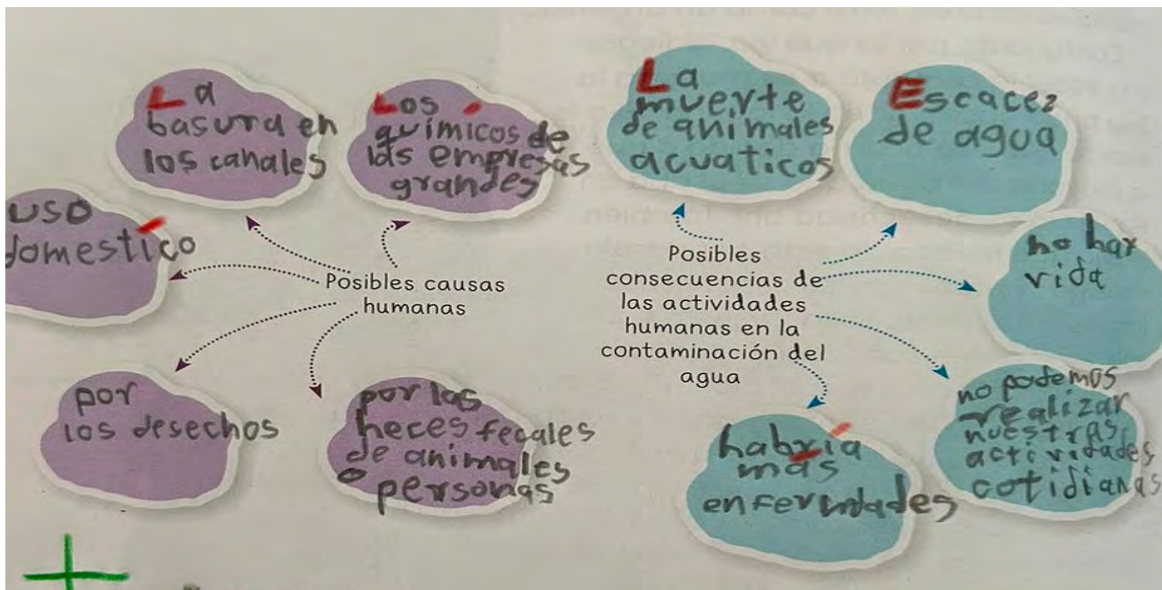 La
basura en
los canales
Los
químicos de
las empresas
grandes
uso
domestíco
Posibles causas
humanas
por
los desechos
por las
heces fecales
de animales
o personas
La
muerte
de animales
acuaticos
Escacez
de agua
no hay
vida
Posibles
consecuencias de
las actividades
humanas en la
contaminación del
agua
no podemos
realizar
nuestras
actividades
cotidianas
habría
más
enfermdades